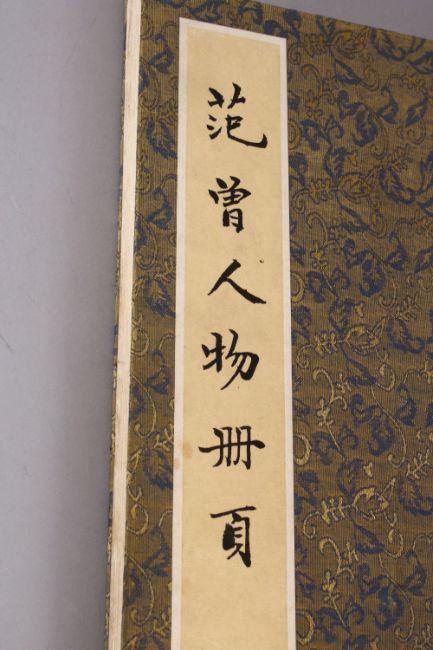 范曾人物册頁